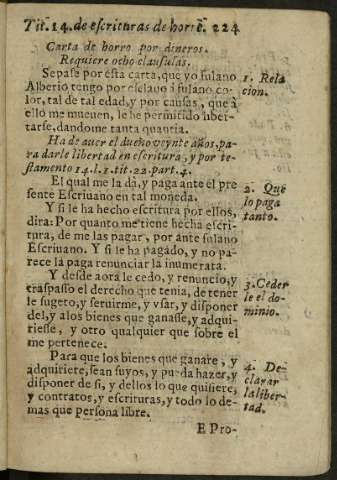 Tit. 14. de escrituras de horrē. 224
Carta de horro por dineros.
Requiere ocho clausulas.
Sepase por esta carta, que yo fulano
Alberio tengo por esclauo à fulano co-
lor, tal de tal edad, y por causas, que à
ello me mueuen, le he permitido liber-
tarse, dandome tanta quantia.
1. Rela
cion.
Ha de auer el dueño veynte años, pa-
ra darle libertad en escritura, y por te-
stamento 14. l. 1. tit. 22. part. 4.
El qual me la dà, y paga ante el pre
sente Escriuano en tal moneda.
Y si le ha hecho escritura por ellos,
dira: Por quanto me tiene hecha escri-
tura, de me las pagar, por ante fulano
Escriuano. Y si le ha pagado, y no pa-
rece la paga renunciar la inumerata.
2. Que
lo paga
tanto.
Y desde aora le cedo, y renuncio, y
traspasso el derecho que tenia, de tener
le sugeto, y seruirme, y vsar, y disponer
del, y alos bienes que ganasse, y adqui-
riesse, y otro qualquier que sobre el
me pertenece.
3. Ceder
le el do-
minio.
Para que los bienes que ganare, y
adquiriere, sean suyos, y pueda hazer, y
disponer de si, y dellos lo que quisiere,
y contratos, y escrituras, y todo lo de-
mas que persona libre.
4. De-
clarar
la liber-
tad.
E Pro-